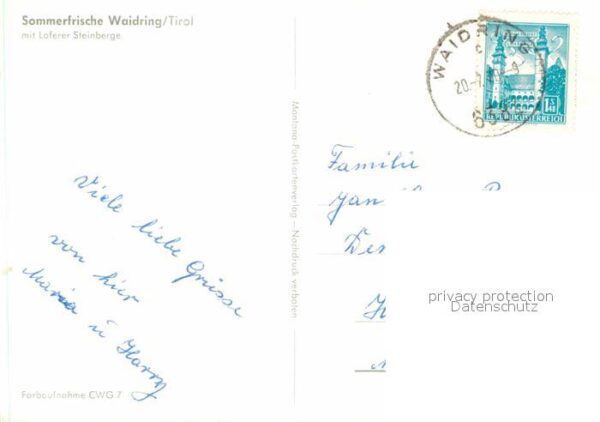 Sommerfrische Waidring/Tirol
mit Loferer Steinberge
Viele liebe Grüsse
von hier
Maria u Harry
Farbaufnahme CWG 7
Montana-Postkartenverlag – Nachdruck verboten
WAIDRING
20.
REPUBLIK ÖSTERREICH
Familie
Jan
Des
privacy protection
Datenschutz